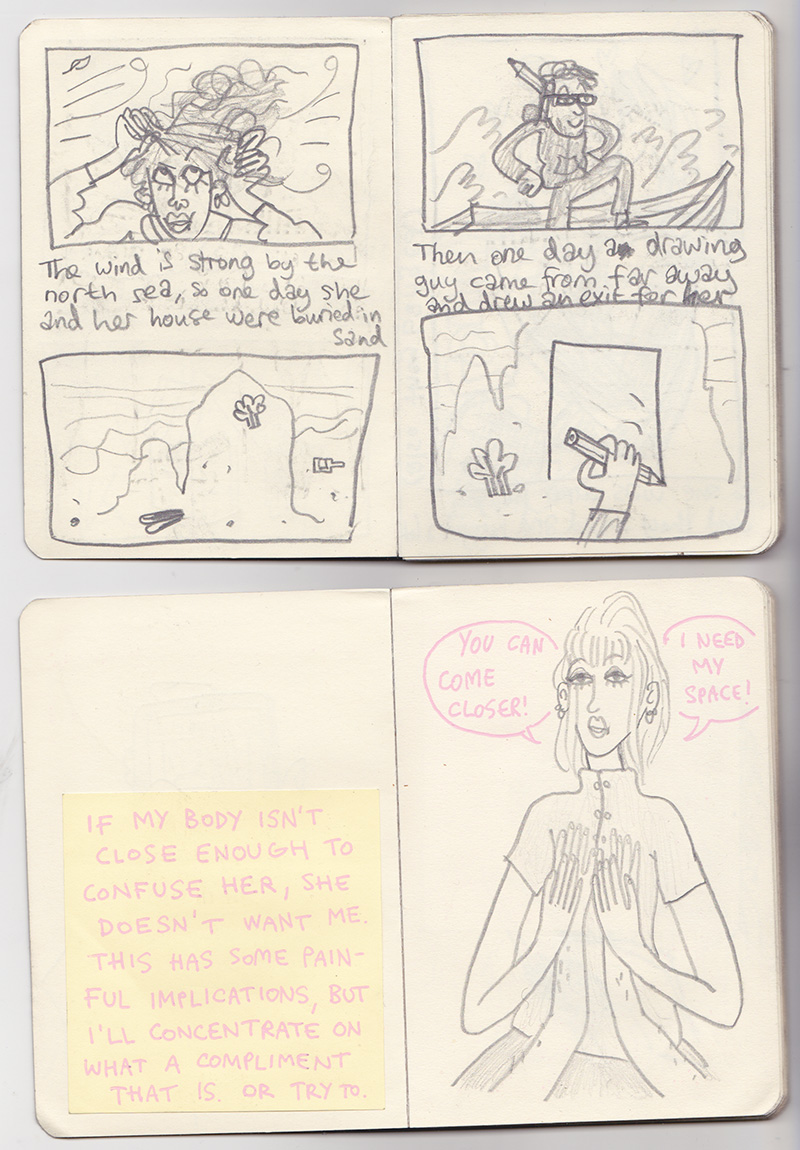 The wind is strong by the
north sea, so one day she
and her house were buried in
sand
Then one day a drawing
guy came from far away
and drew an exit for her
IF MY BODY ISN'T
CLOSE ENOUGH TO
CONFUSE HER, SHE
DOESN'T WANT ME.
THIS HAS SOME PAIN-
FUL IMPLICATIONS, BUT
I'LL CONCENTRATE ON
WHAT A COMPLIMENT
THAT IS. OR TRY TO.
YOU CAN
COME
CLOSER!
I NEED
MY
SPACE!